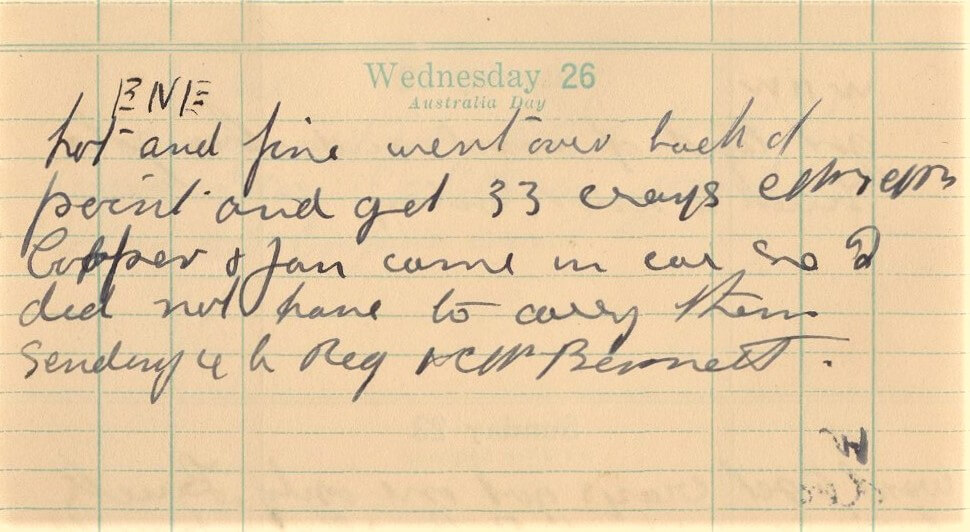 Wednesday 26
Australia Day
ENE
hot and fine went over back of
point and get 33 crays
Copper & Jan came in car so I
did not have to carry them
Sending 4 to Reg Bennett.